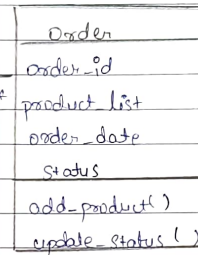 Order
order_id
product_list
order_date
status
add_product()
update_status()